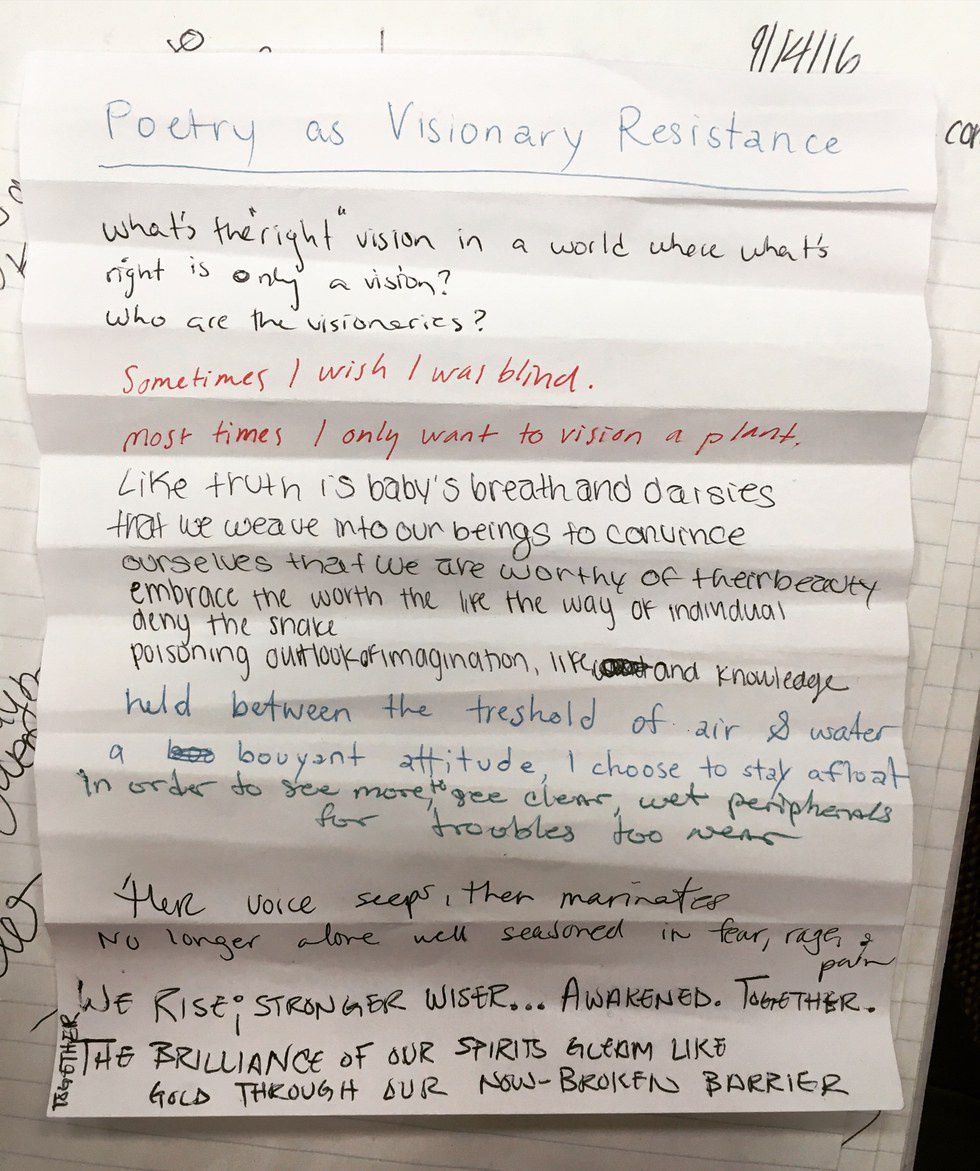 9/14/16
Poetry as Visionary Resistance
what's the "right" vision in a world where what's
right is only a vision?
who are the visioneries?
Sometimes I wish I was blind.
most times I only want to vision a plant.
Like truth is baby's breath and daisies
that we weave into our beings to convince
ourselves that we are worthy of their beauty
embrace the worth the life the way of individual
deny the snake
poisoning outlook of imagination, life and knowledge
held between the treshold of air & water
a bouyant attitude, I choose to stay afloat
In order to see more, to see clear, wet peripherals
for troubles too near
Her voice seeps, then marinates
No longer alone well seasoned in fear, rage, &
pain
WE RISE; STRONGER WISER... AWAKENED. TOGETHER.
TOGETHER
THE BRILLIANCE OF OUR SPIRITS GLEAM LIKE
GOLD THROUGH OUR NOW-BROKEN BARRIER